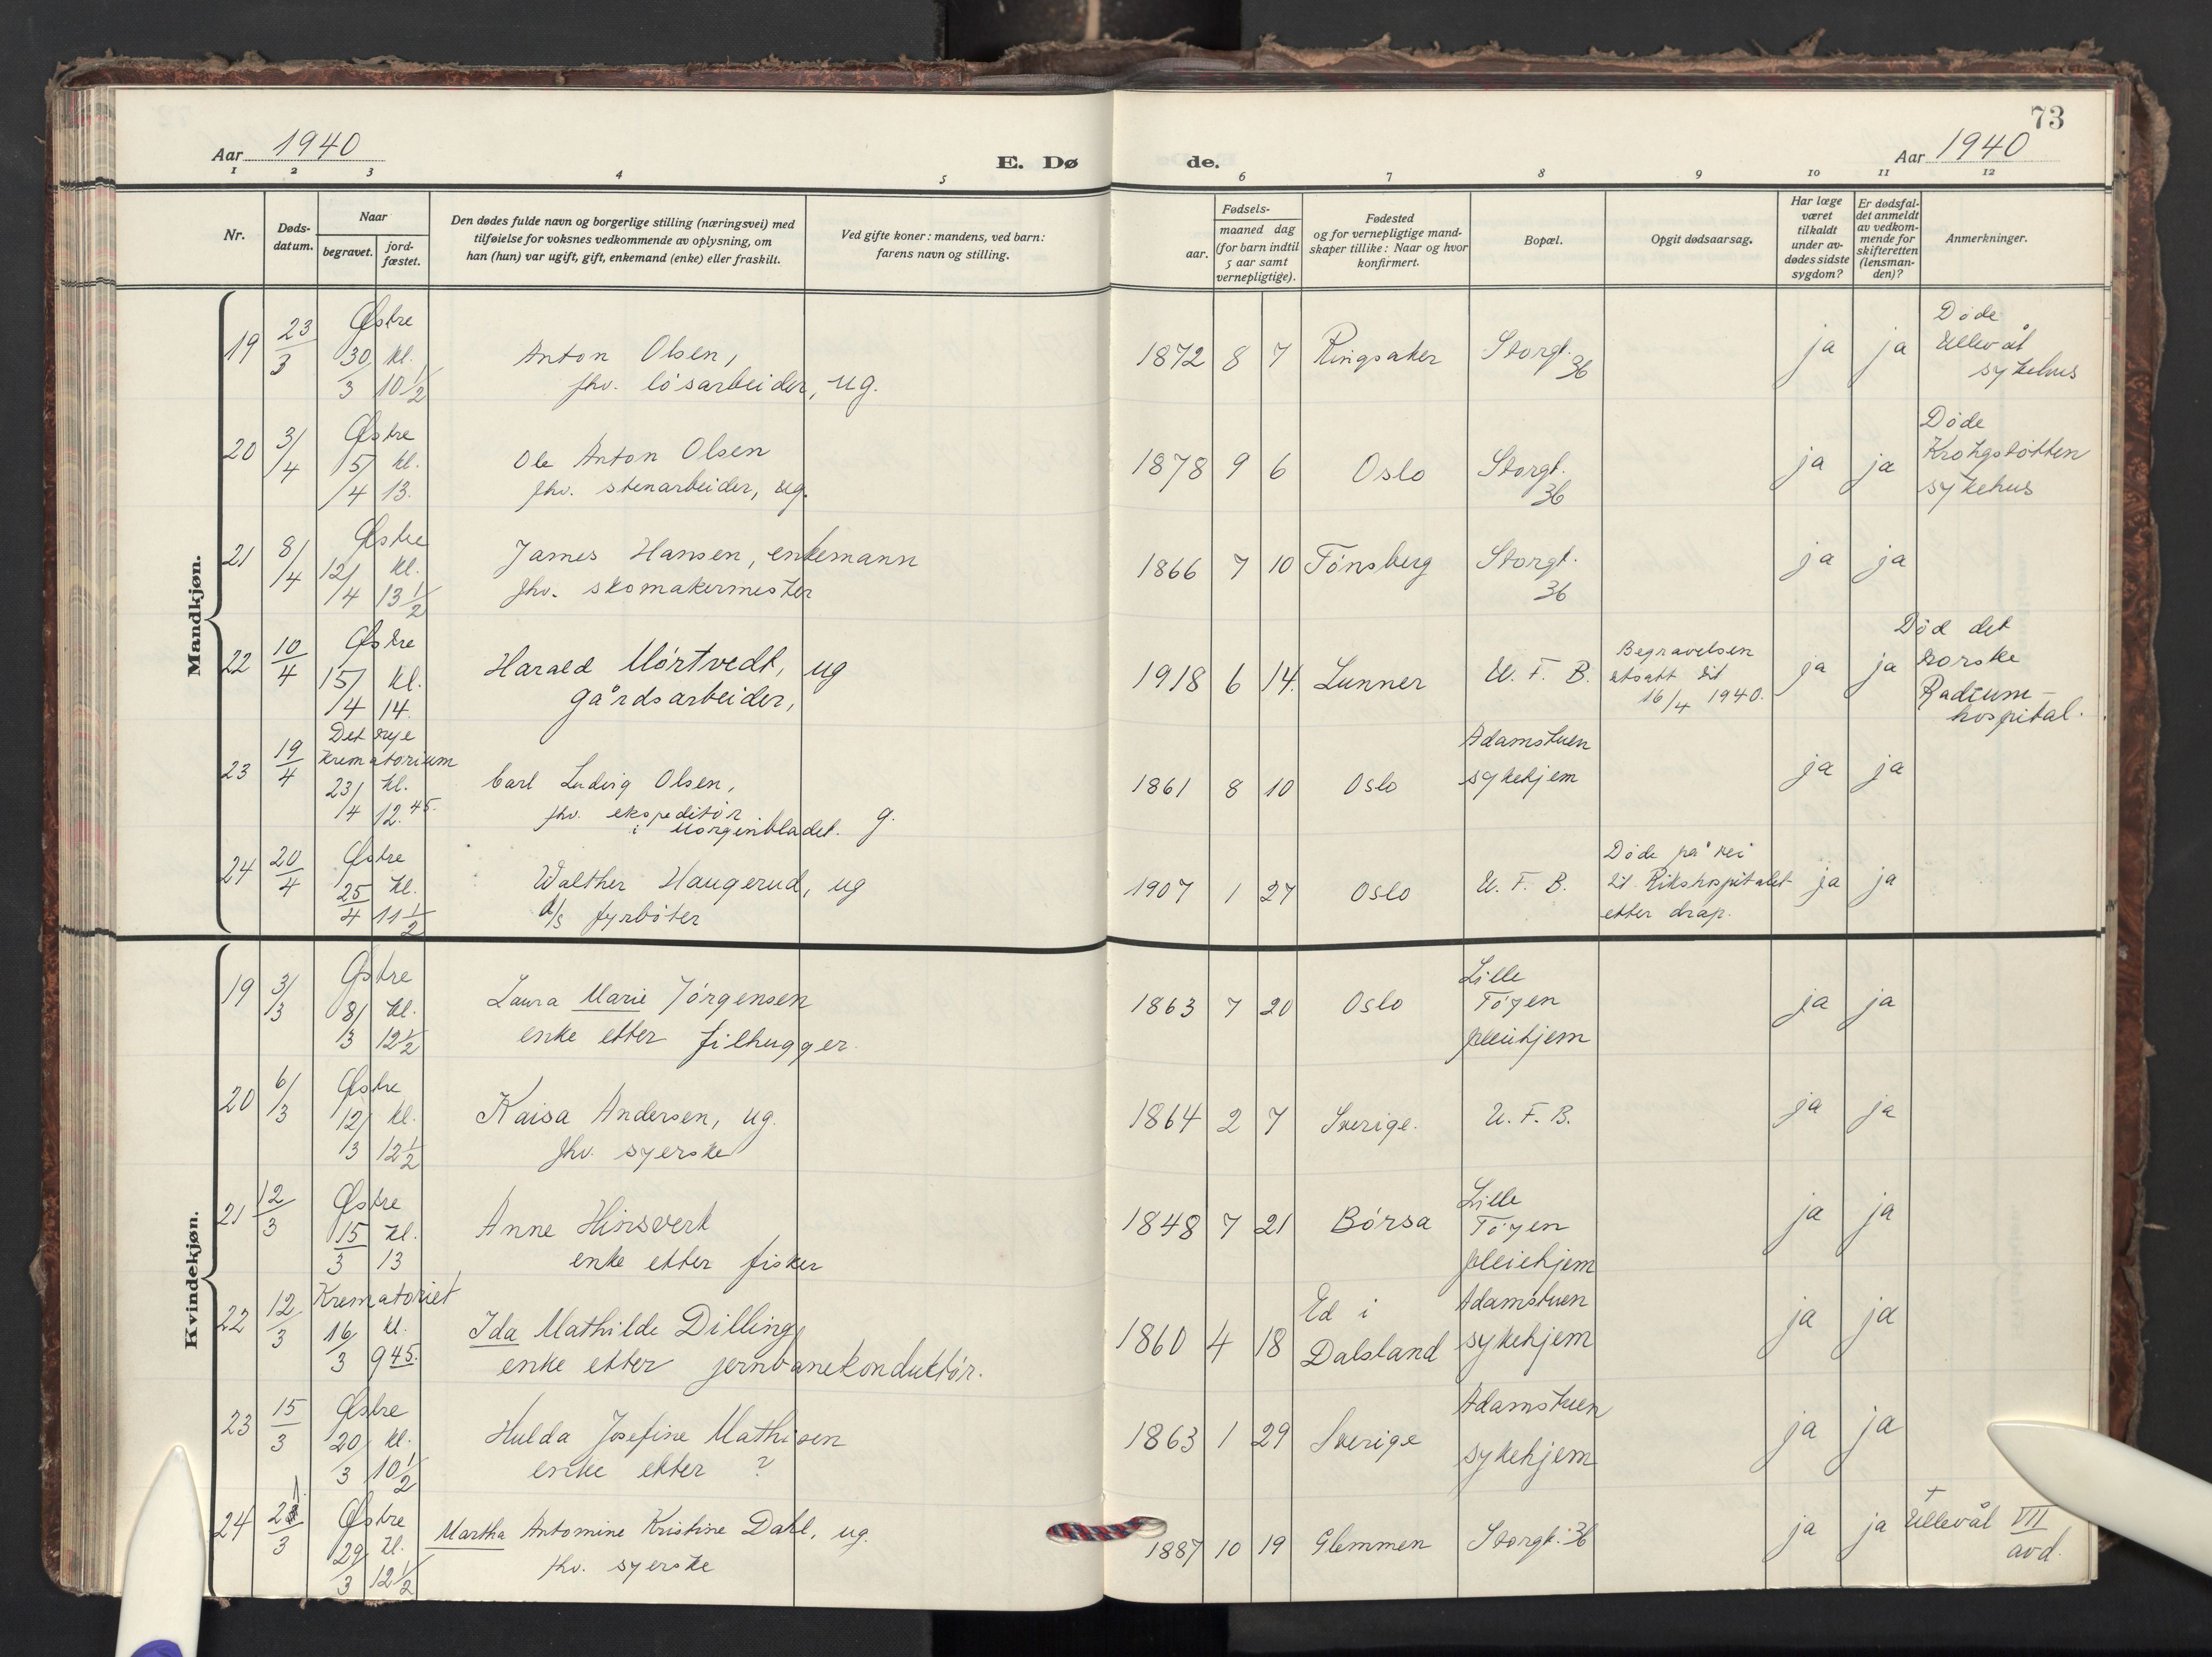 73
Aar 1940
E. Dø de.
Aar 1940
1 2 3 4 5 6 7 8 9 10 11 12
Nr.
Døds-
datum.
Naar
begravet.
jord-
fæstet.
Den dødes fulde navn og borgerlige stilling (næringsvei) med
tilføielse for voksnes vedkommende av oplysning, om
han (hun) var ugift, gift, enkemand (enke) eller fraskilt.
Ved gifte koner: mandens, ved barn:
farens navn og stilling.
Fødsels-
aar.
maaned dag
(for barn indtil
5 aar samt
vernepligtige).
Fødested
og for vernepligtige mand-
skaper tillike: Naar og hvor
konfirmert.
Bopæl.
Opgit dødsaarsag.
Har læge
været
tilkaldt
under av-
dødes sidste
sygdom?
Er dødsfal-
det anmeldt
av vedkom-
mende for
skifteretten
(lensman-
den)?
Anmerkninger.
Mandkjøn.
19 23/3 Østre 30/3 kl. 10 1/2
Anton Olsen,
fhv. løsarbeider, ug.
1872 8 7 Ringsaker Storgt. 36 ja ja
Døde
Ullevål
sykehus
20 3/4 Østre 5/4 kl. 13.
Ole Anton Olsen
fhv. stenarbeider, ug.
1878 9 6 Oslo Storgt. 36 ja ja
Døde
Krohgstøtten
sykehus
21 8/4 Østre 12/4 kl. 13 1/2
James Hansen, enkemann
fhv. skomakermester
1866 7 10 Tønsberg Storgt. 36 ja ja
22 10/4 Østre 15/4 kl. 14.
Harald Mørtvedt, ug
gårdsarbeider,
1918 6 14. Lunner U. F. B.
Begravelsen
utsatt til
16/4 1940.
ja ja
Død det
norske
Radium-
hospital.
23 19/4 Det nye
krematorium
23/4 kl. 12.45.
Carl Ludvig Olsen,
fhv. ekspeditør
i Morgenbladet. g.
1861 8 10 Oslo
Adamstuen
sykehjem
ja ja
24 20/4 Østre 25/4 kl. 11 1/2
Walther Haugerud, ug
d/s fyrbøter
1907 1 27 Oslo U. F. B.
Døde på vei
til Rikshospitalet
etter drap.
ja ja
Kvindekjøn.
19 3/3 Østre 8/3 kl. 12 1/2
Laura Marie Jørgensen
enke etter filhugger.
1863 7 20 Oslo
Lille
Tøyen
pleiehjem
ja ja
20 6/3 Østre 12/3 kl. 12 1/2
Kaisa Andersen, ug.
fhv. syerske
1864 2 7 Sverige. U. F. B. ja ja
21 12/3 Østre 15/3 kl. 13
Anne
enke etter fisker
1848 7 21 Børsa
Lille
Tøyen
pleiehjem
ja ja
22 12/3 Krematoriet 16/3 kl. 9 45.
Ida Mathilde Dilling
enke etter jernbanekonduktør.
1860 4 18
Ed i
Dalsland
Adamstuen
sykehjem
ja ja
23 15/3 Østre 20/3 kl. 10 1/2
Hulda Josefine Mathisen
enke etter ?
1863 1 29 Sverige
Adamstuen
sykehjem
ja ja
24 21/3 Østre 29/3 kl. 12 1/2
Martha Antomine Kristine Dahl, ug.
fhv. syerske
1887 10 19 Glemmen Storgt. 36 ja ja
†
Ullevål VII
avd.